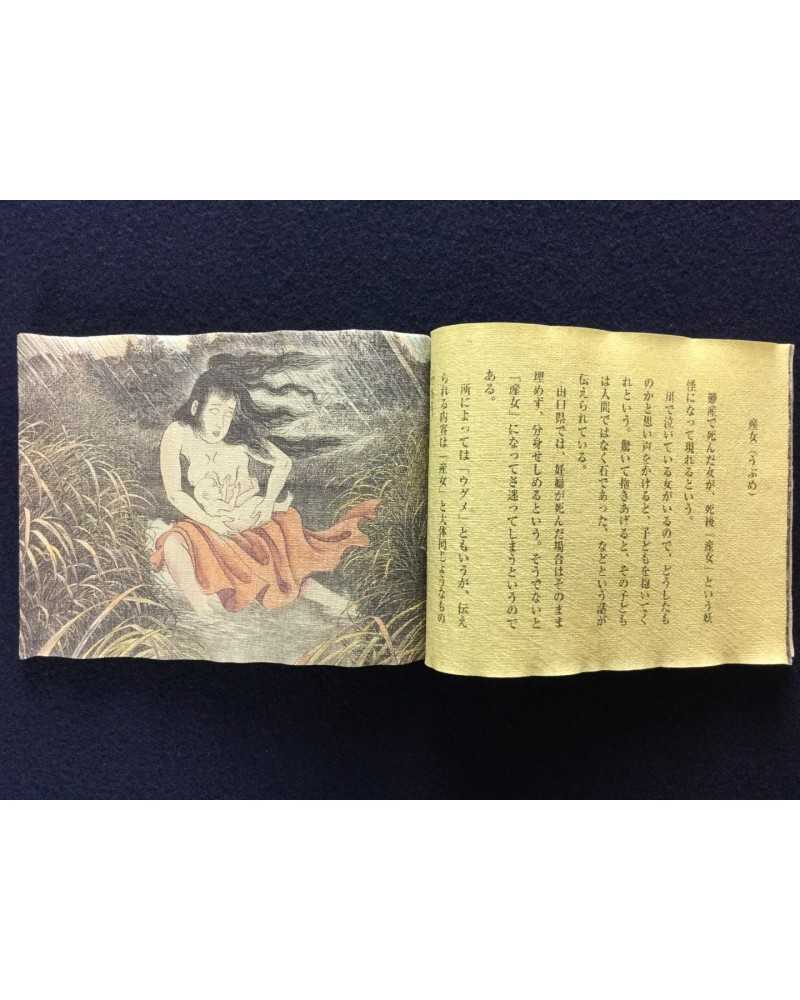 産女（うぶめ）
難産で死んだ女が、死後「産女」という妖
怪になって現れるという。
川で泣いている女がいるので、どうしたも
のかと思い声をかけると、子どもを抱いてく
れという。驚いて抱きあげると、その子ども
は人間ではなく石であった、などという話が
伝えられている。
山口県では、妊婦が死んだ場合はそのまま
埋めず、分身せしめるという。そうでないと
「産女」になってさ迷ってしまうというので
ある。
所によっては「ウグメ」ともいうが、伝え
られる内容は「産女」と大体同じようなもの